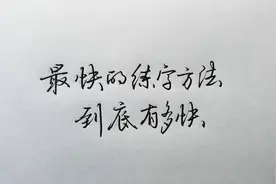 最快的练字方法
到底有多快、